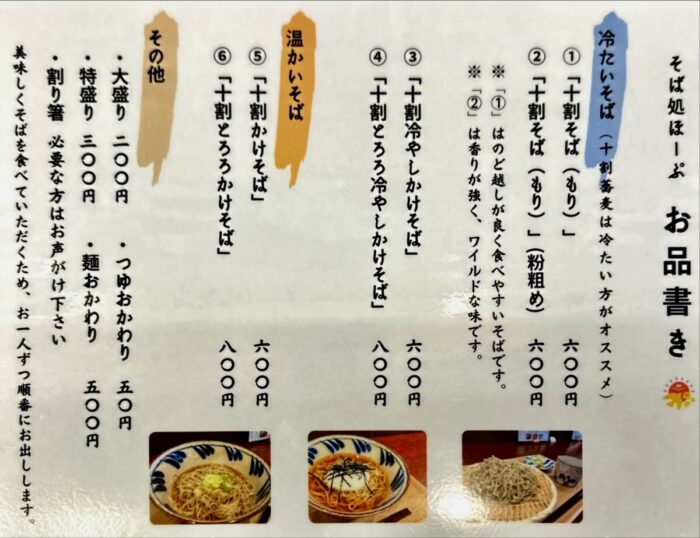 そば処ほーぷ お品書き
冷たいそば（十割蕎麦は冷たい方がオススメ）
①「十割そば（もり）」 六〇〇円
②「十割そば（もり）」（粉粗め） 六〇〇円
※「①」はのど越しが良く食べやすいそばです。
※「②」は香りが強く、ワイルドな味です。
③「十割冷やしかけそば」 六〇〇円
④「十割とろろ冷やしかけそば」 八〇〇円
温かいそば
⑤「十割かけそば」 六〇〇円
⑥「十割とろろかけそば」 八〇〇円
その他
・大盛り 二〇〇円 ・つゆおかわり 五〇円
・特盛り 三〇〇円 ・麺おかわり 五〇〇円
・割り箸 必要な方はお声がけ下さい
美味しくそばを食べていただくため、お一人ずつ順番にお出しします。